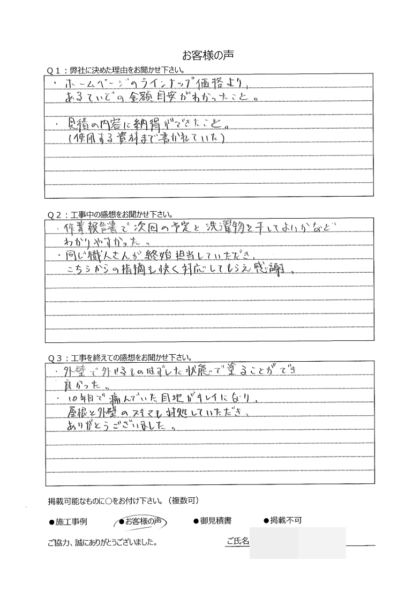 お客様の声
Q1：弊社に決めた理由をお聞かせ下さい。
・ホームページのラインナップ価格より、
あるていどの金額目安がわかったこと。
・見積の内容に納得ができたこと。
(使用する資料まで書かれていた)
Q2：工事中の感想をお聞かせ下さい。
・作業報告書で次回の予定と洗濯物を干してよいかなど
わかりやすかった。
・同じ職人さんが終始担当していただき、
こちらからの指摘も快く対応してもらえ感謝。
Q3：工事を終えての感想をお聞かせ下さい。
・外壁で外せるものはずした状態で塗ることができ
良かった。
・10年目で痛んでいた目地がキレイになり、
屋根と外壁のスキマも対処していただき、
ありがとうございました。
掲載可能なものに○をお付け下さい。（複数可）
●施工事例 ●お客様の声 ●御見積書 ●掲載不可
ご協力、誠にありがとうございました。 ご氏名